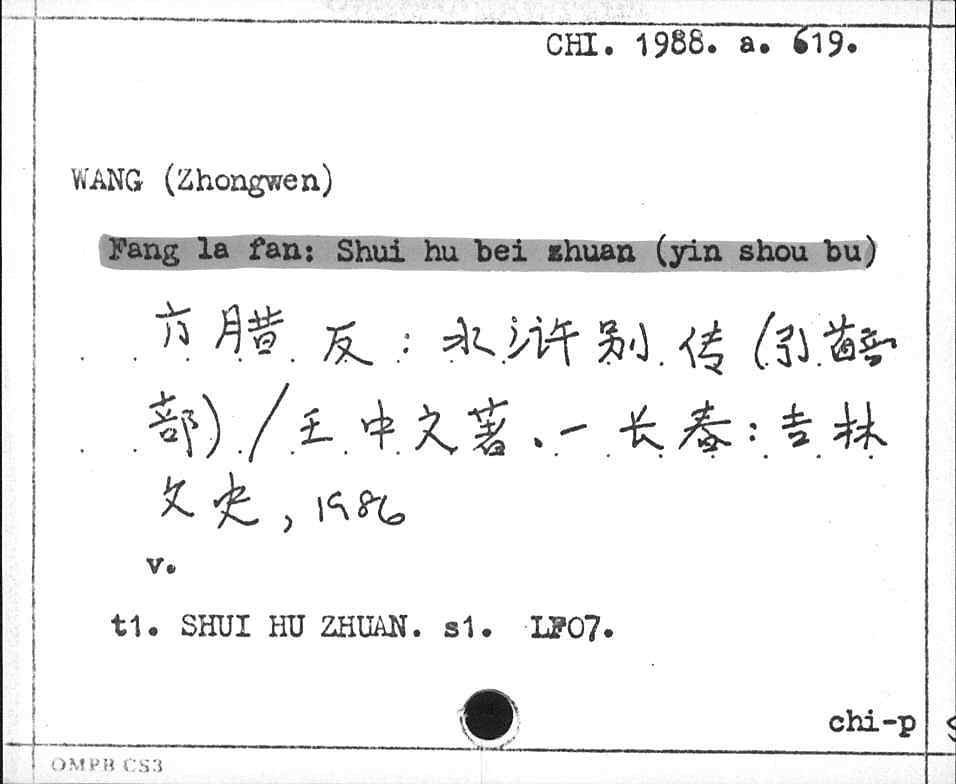 CHI. 1988. a. 619.
WANG (Zhongwen)
Fang la fan: Shui hu bei zhuan (yin shou bu)
方腊反:水浒别传(引首
部)/王中文著.一长春:吉林
文史,1986
v.
t1. SHUI HU ZHUAN. s1. LF07.
chi-p
OMPB CS3